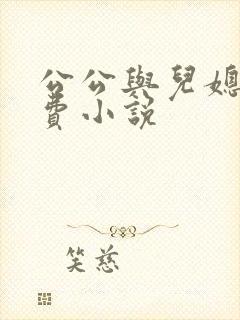 公公與兒媳
費小說
笑慈